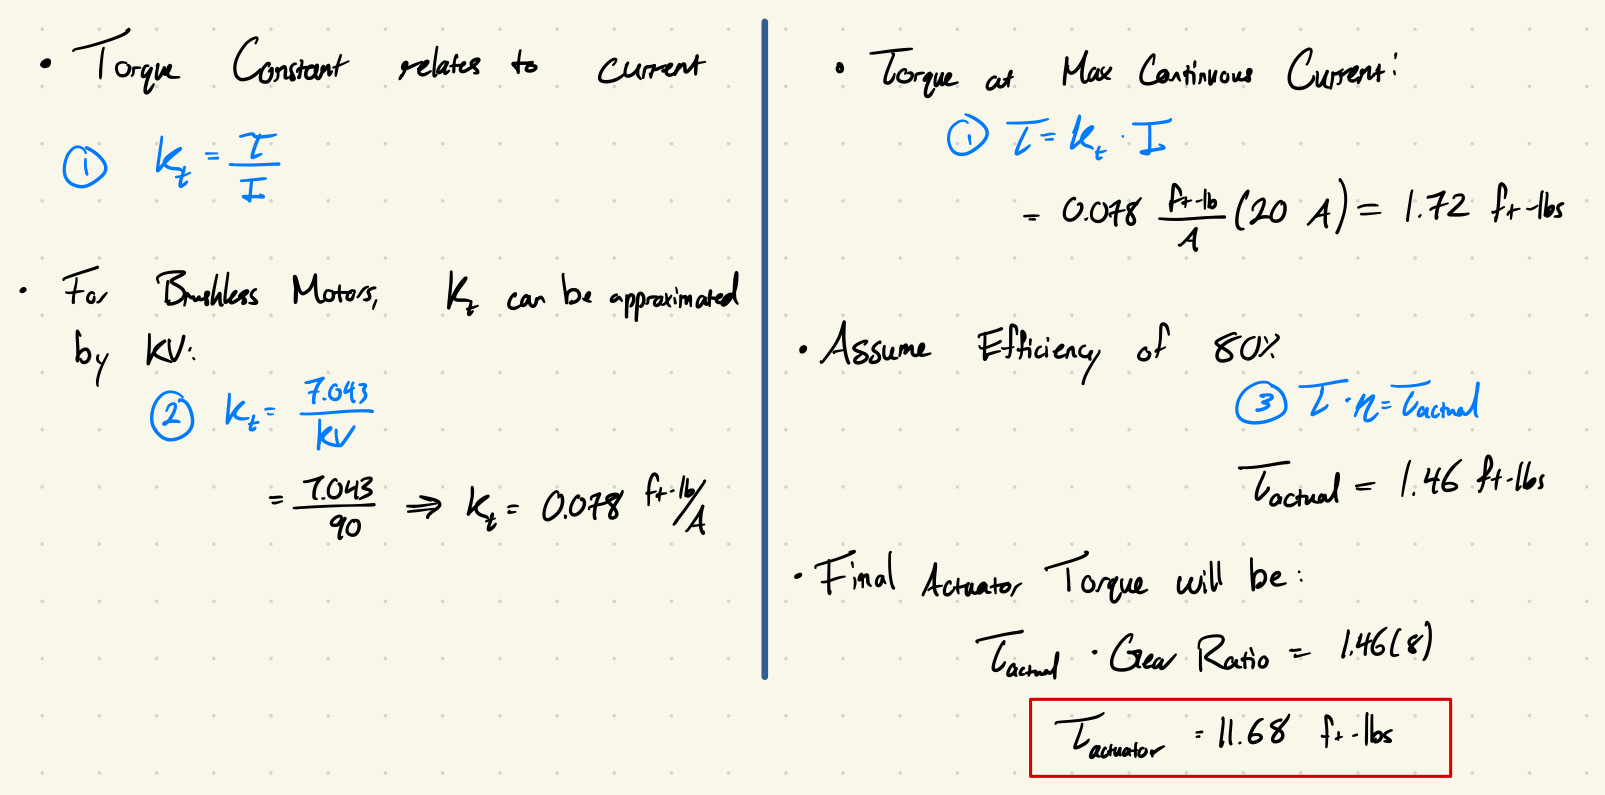 • Torque Constant relates to current
① Kt = τ/I
• For Brushless Motors, Kt can be approximated
by KV:
② Kt = 7.043/KV
= 7.043/90 ⇒ Kt = 0.078 ft-lb/A
• Torque at Max Continuous Current:
① τ = Kt · I
= 0.078 ft-lb/A (20 A) = 1.72 ft-lbs
• Assume Efficiency of 80%
③ τ · η = τactual
τactual = 1.46 ft-lbs
• Final Actuator Torque will be:
τactual · Gear Ratio = 1.46(8)
τactuator = 11.68 ft-lbs